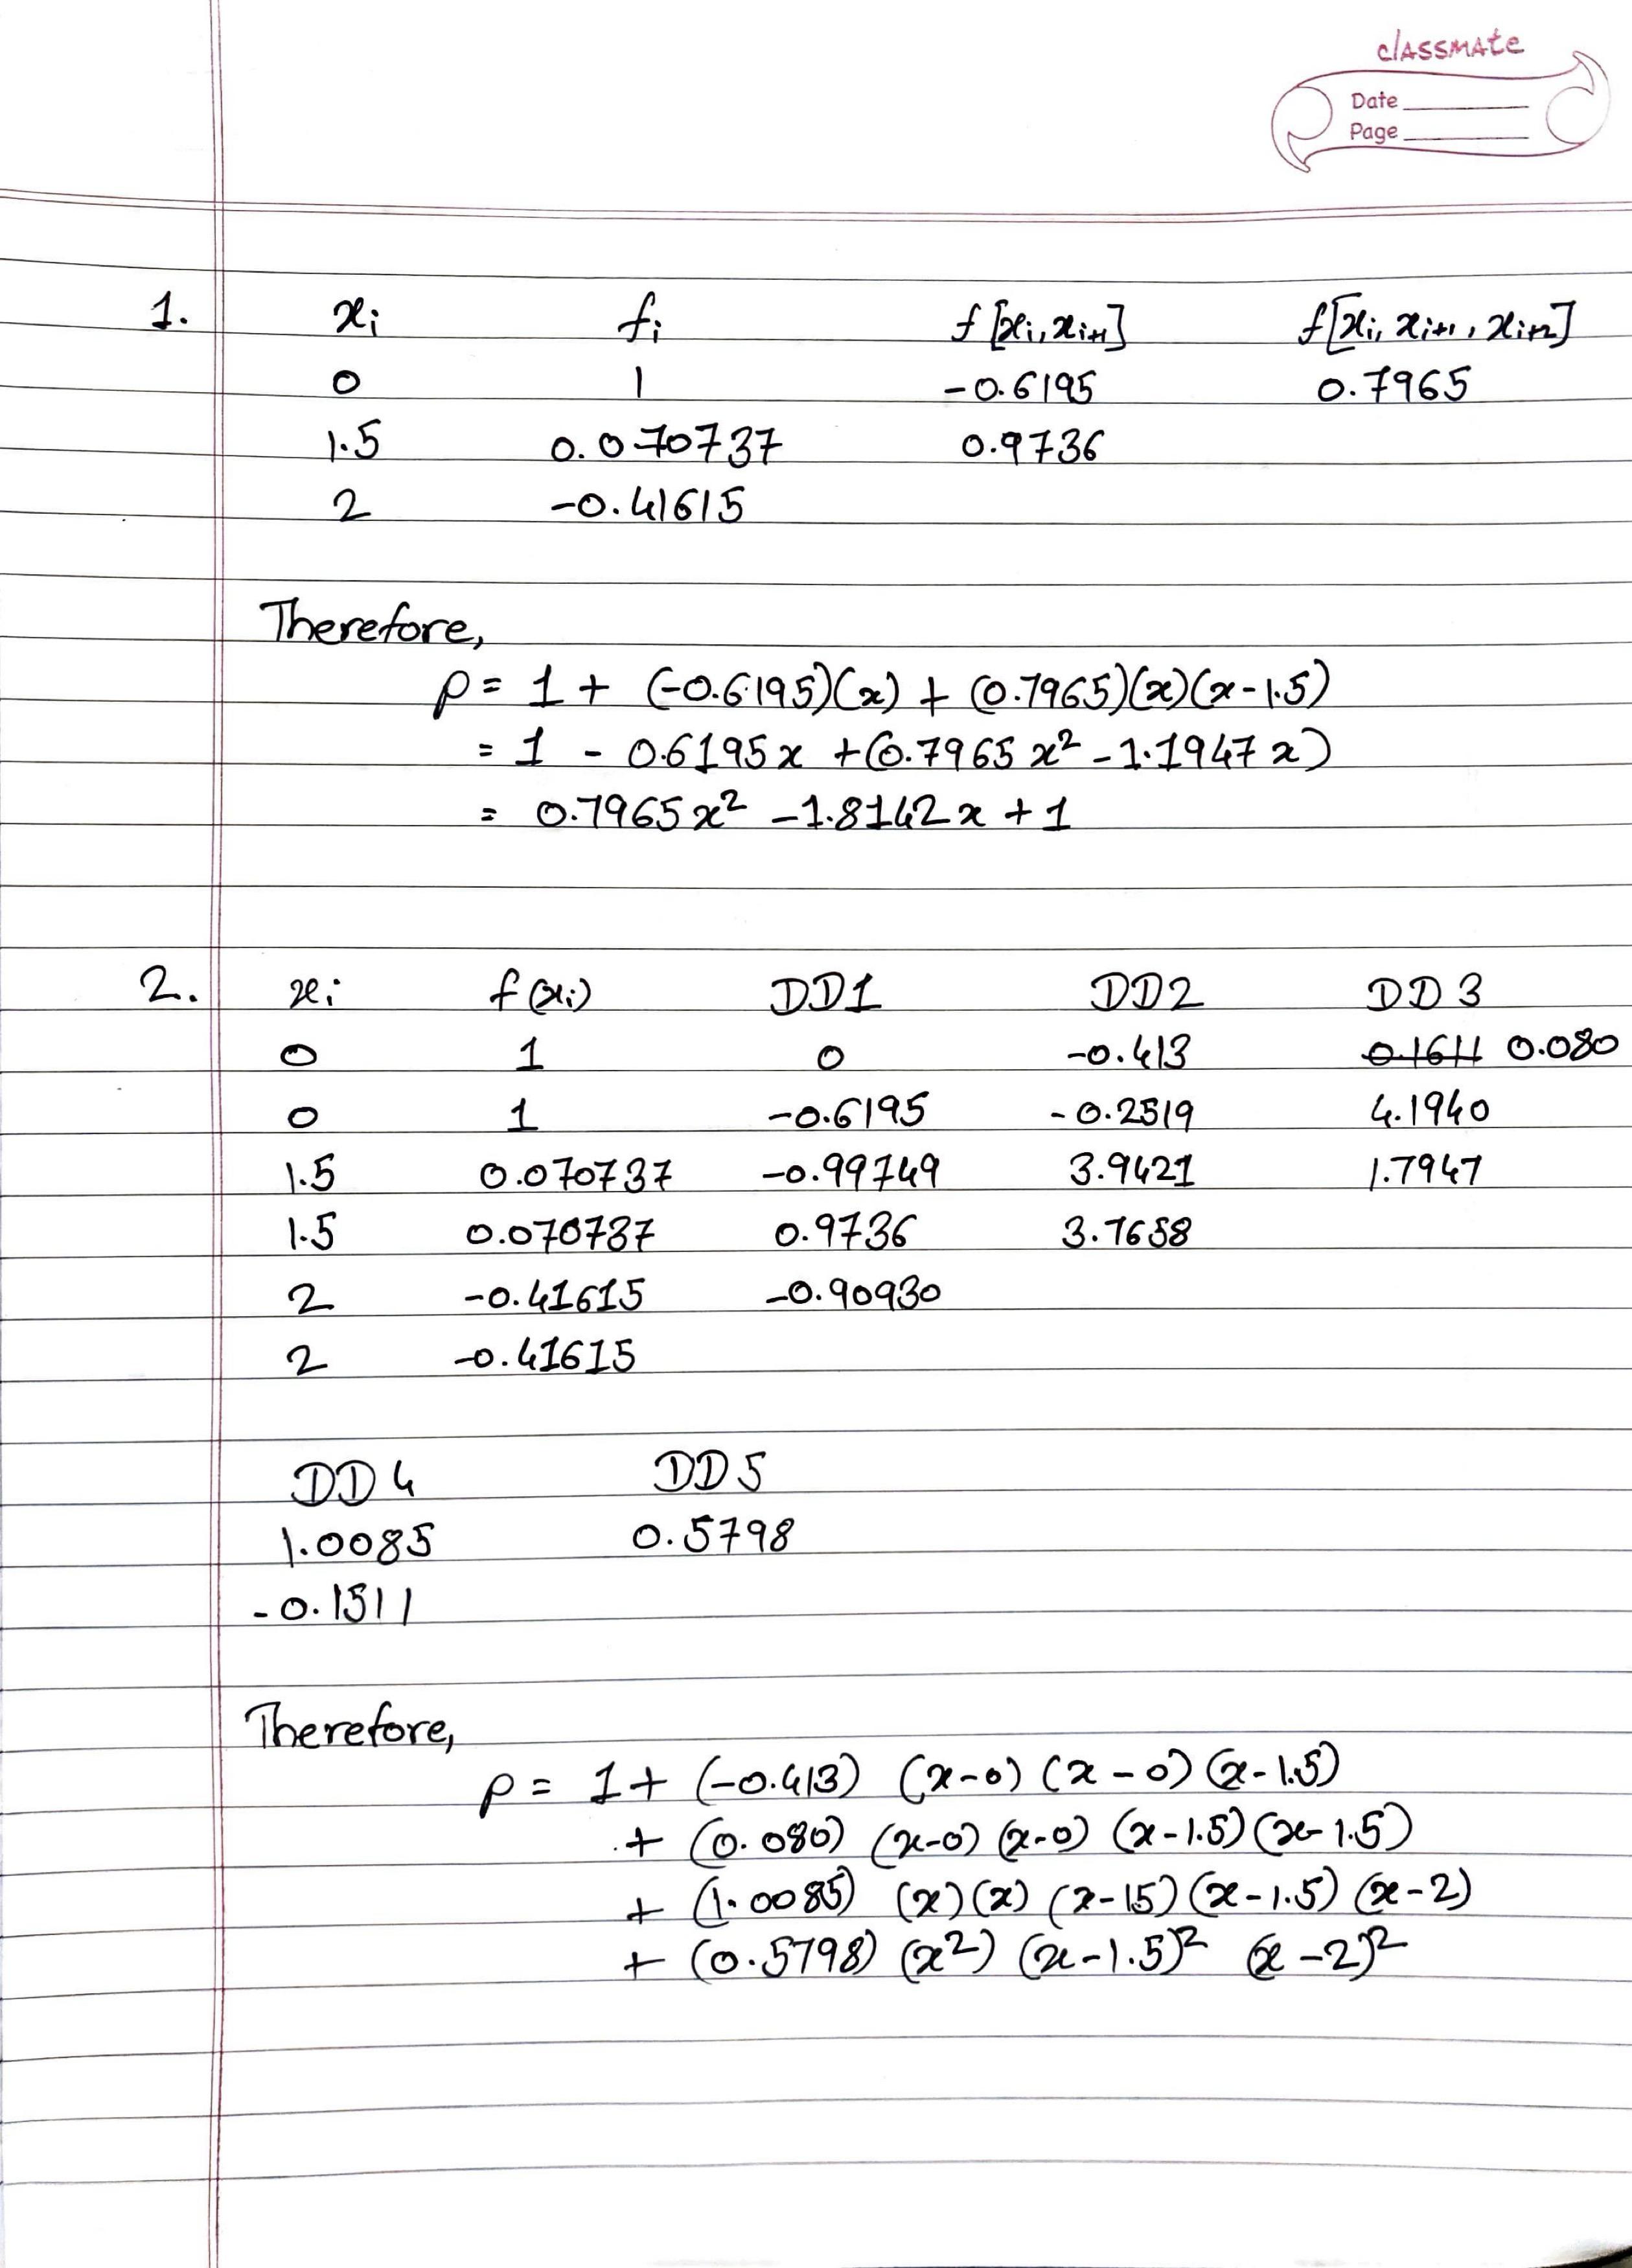 classmate
Date
Page
1. xᵢ fᵢ f[xᵢ, xᵢ₊₁] f[xᵢ, xᵢ₊₁, xᵢ₊₂]
0 1 -0.6195 0.7965
1.5 0.070737 0.9736
2 -0.41615
Therefore,
p = 1 + (-0.6195)(x) + (0.7965)(x)(x-1.5)
= 1 - 0.6195x + (0.7965x² - 1.1947x)
= 0.7965x² - 1.8142x + 1
2. xᵢ f(xᵢ) DD1 DD2 DD3
0 1 0 -0.413 0.1611 0.080
0 1 -0.6195 -0.2519 4.1940
1.5 0.070737 -0.99749 3.9421 1.7947
1.5 0.070737 0.9736 3.7658
2 -0.41615 -0.90930
2 -0.41615
DD4 DD5
1.0085 0.5798
-0.1511
Therefore,
p = 1 + (-0.413) (x-0) (x-0) (x-1.5)
+ (0.080) (x-0) (x-0) (x-1.5) (x-1.5)
+ (1.0085) (x) (x) (x-15) (x-1.5) (x-2)
+ (0.5798) (x²) (x-1.5)² (x-2)²